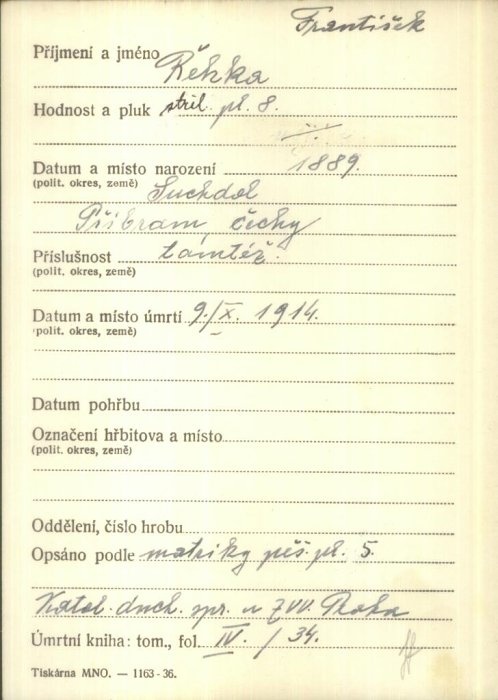 František
Příjmení a jméno Řehka
Hodnost a pluk střel. pl. 8.
Datum a místo narození 1889.
(polit. okres, země) Suchdol
Příbram, čechy
Příslušnost tamtéž.
(polit. okres, země)
Datum a místo úmrtí 9./X. 1914.
(polit. okres, země)
Datum pohřbu
Označení hřbitova a místo
(polit. okres, země)
Oddělení, číslo hrobu
Opsáno podle matriky pěš. pl. 5.
Katol. duch. spr. u ZVV. Praha
Úmrtní kniha: tom., fol. IV. / 34.
Tiskárna MNO. — 1163-36.